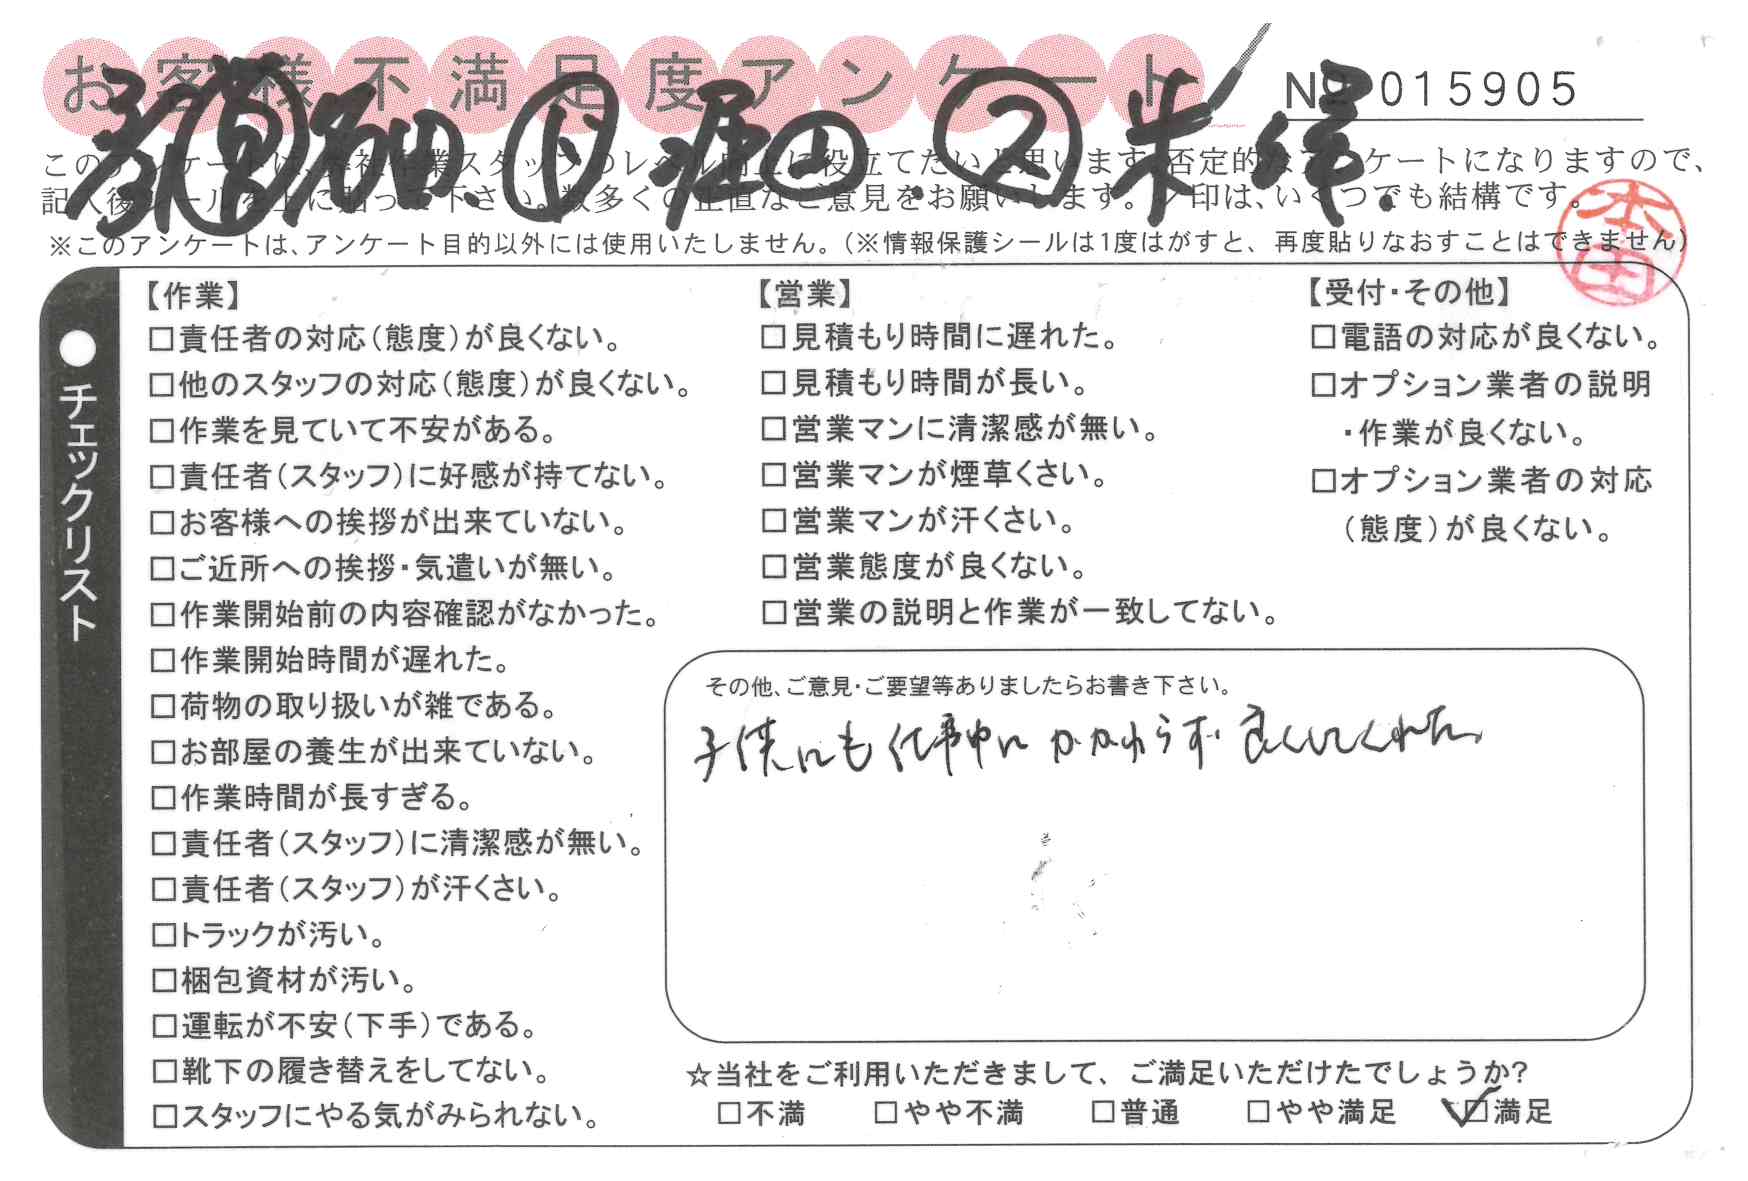 お客様不満足度アンケート
No 015905
このアンケートは、弊社作業スタッフのレベル向上に役立てたいと思います。否定的なアンケートになりますので、
記入後シールを上に貼って下さい。数多くの正直なご意見をお願いします。✓印は、いくつでも結構です。
※このアンケートは、アンケート目的以外には使用いたしません。(※情報保護シールは1度はがすと、再度貼りなおすことはできません)
本田
チェックリスト
【作業】
□責任者の対応(態度)が良くない。
□他のスタッフの対応(態度)が良くない。
□作業を見ていて不安がある。
□責任者(スタッフ)に好感が持てない。
□お客様への挨拶が出来ていない。
□ご近所への挨拶・気遣いが無い。
□作業開始前の内容確認がなかった。
□作業開始時間が遅れた。
□荷物の取り扱いが雑である。
□お部屋の養生が出来ていない。
□作業時間が長すぎる。
□責任者(スタッフ)に清潔感が無い。
□責任者(スタッフ)が汗くさい。
□トラックが汚い。
□梱包資材が汚い。
□運転が不安(下手)である。
□靴下の履き替えをしてない。
□スタッフにやる気がみられない。
【営業】
□見積もり時間に遅れた。
□見積もり時間が長い。
□営業マンに清潔感が無い。
□営業マンが煙草くさい。
□営業マンが汗くさい。
□営業態度が良くない。
□営業の説明と作業が一致してない。
【受付・その他】
□電語の対応が良くない。
□オプション業者の説明
・作業が良くない。
□オプション業者の対応
(態度)が良くない。
その他、ご意見・ご要望等ありましたらお書き下さい。
子供にも仕事中にかかわらず良くしてくれた。
☆当社をご利用いただきまして、ご満足いただけたでしょうか?
□不満 □やや不満 □普通 □やや満足 ☑満足